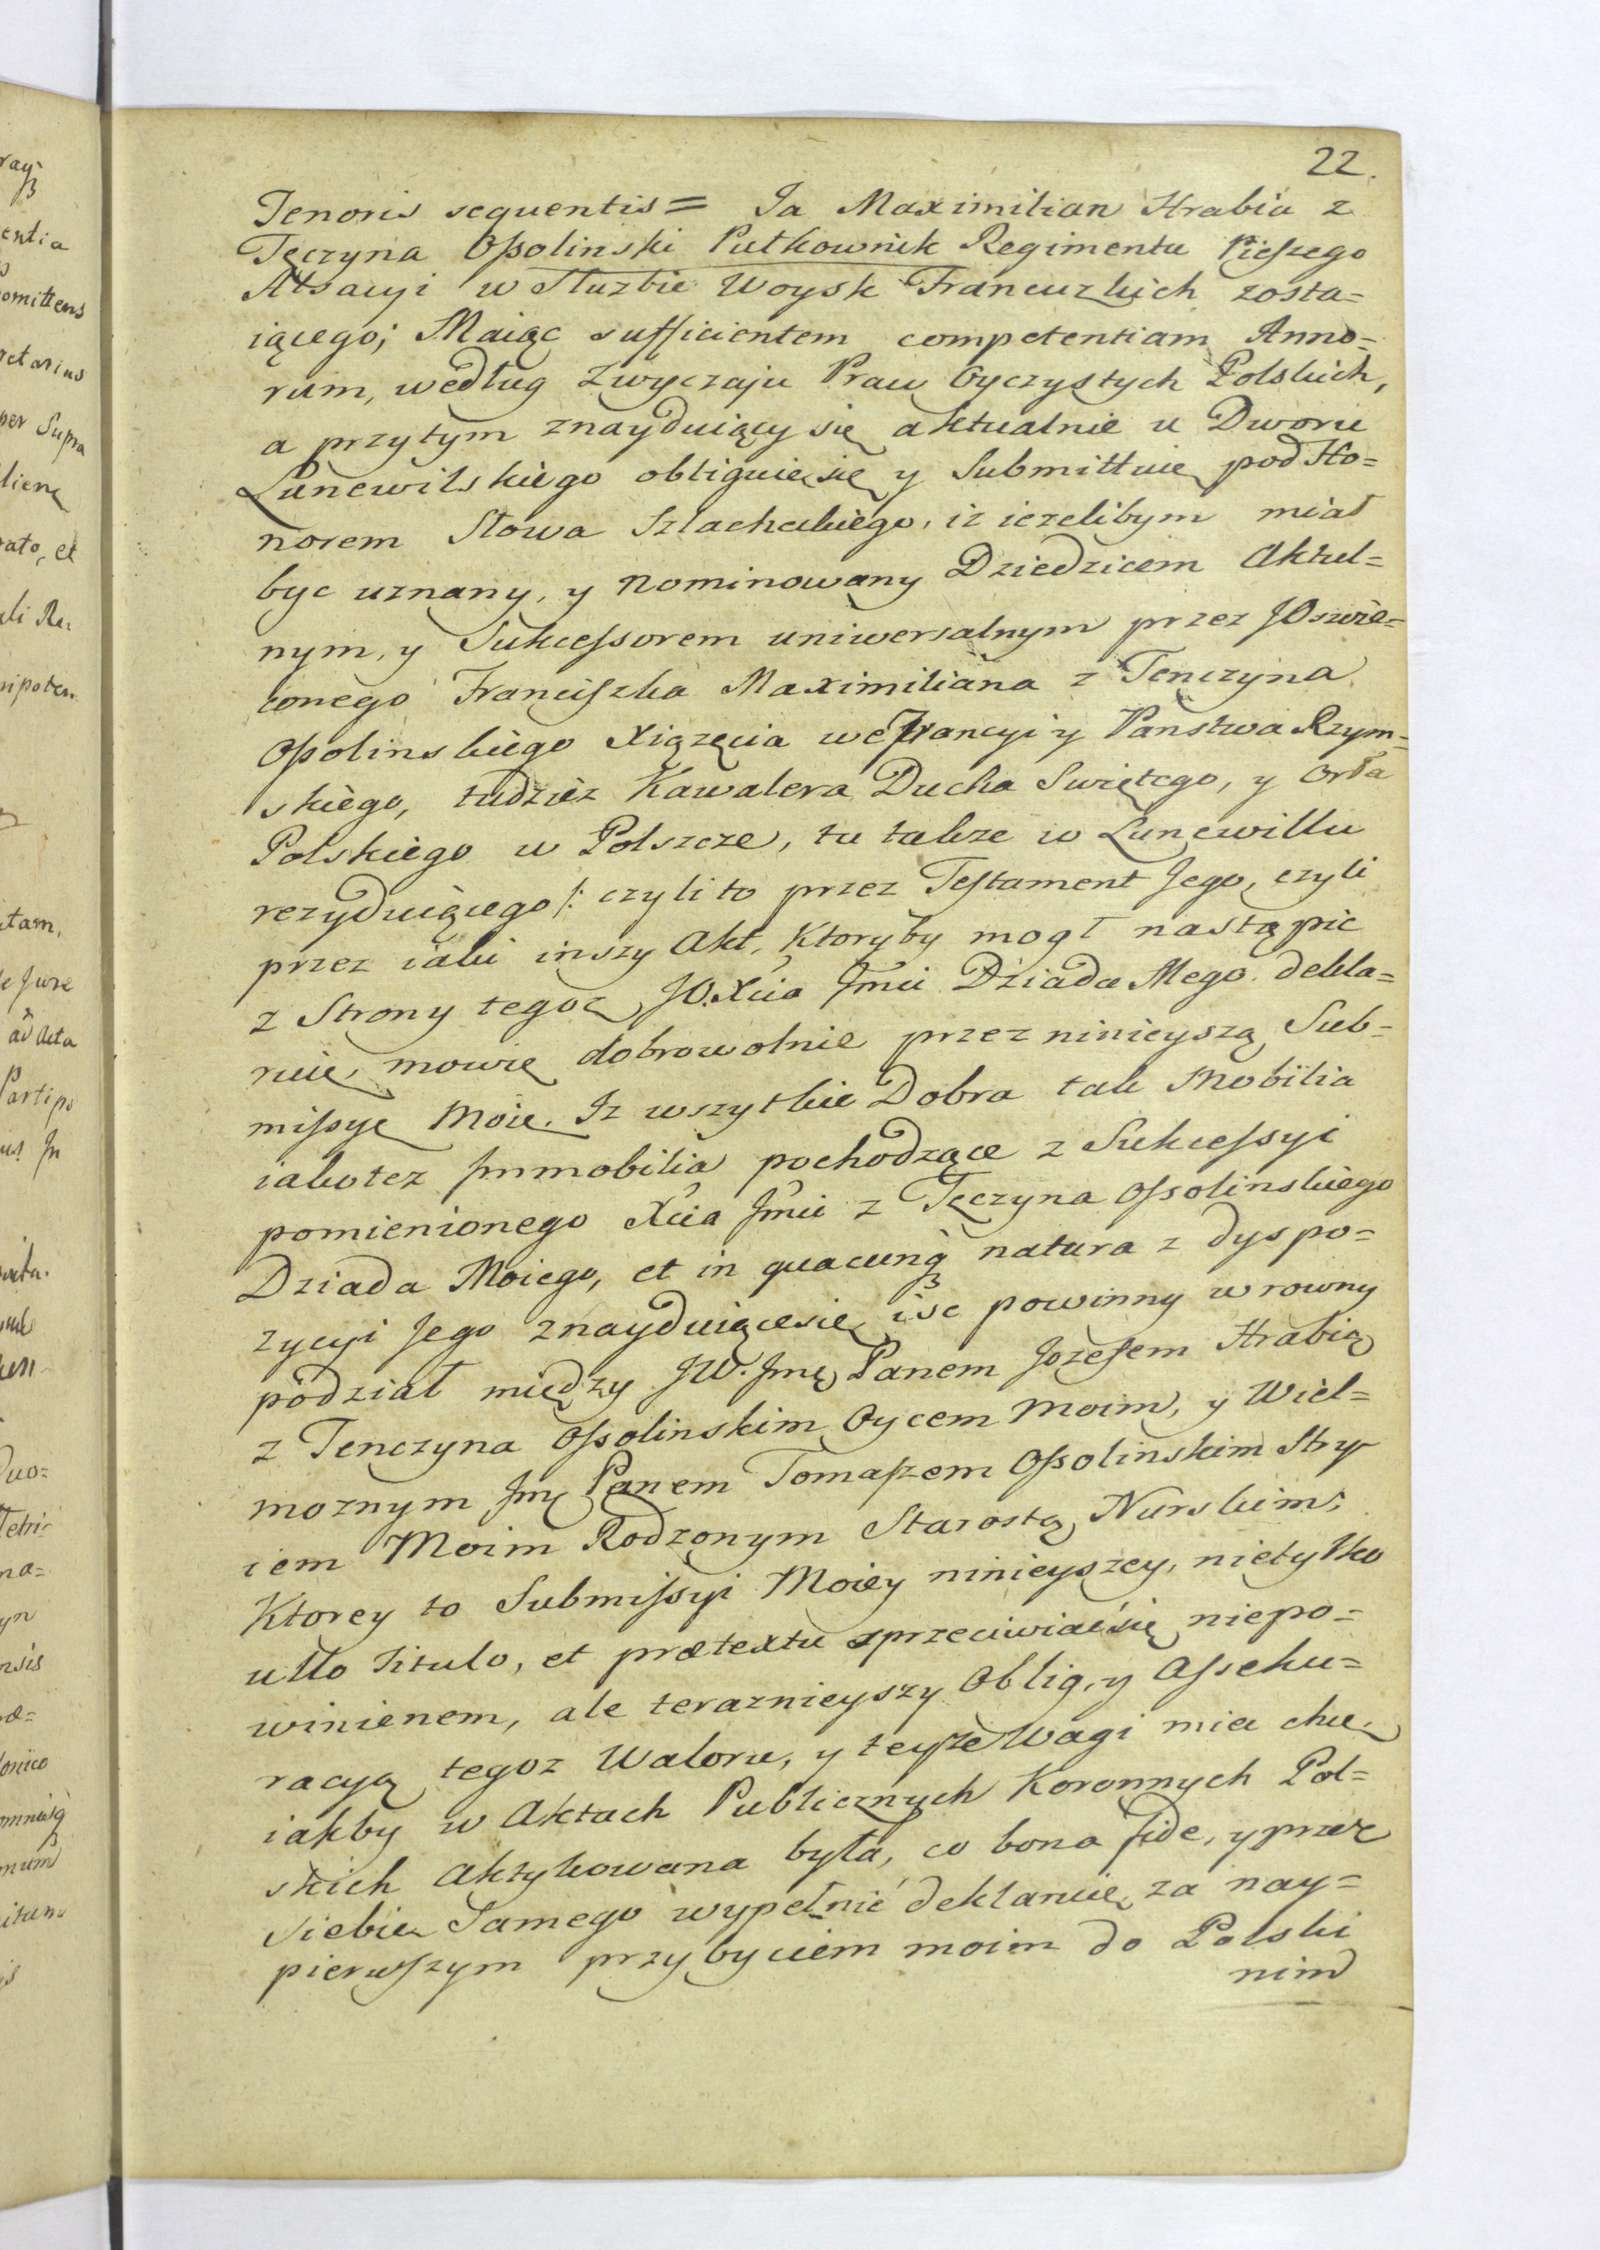 22.
Tenoris sequentis = Ja Maximilian Hrabia z
Tęczyna Ossolinski Pułkownik Regimentu Pieszego
Alsacyi w Służbie Woysk Francuzkich zosta=
iącego; Maiąc sufficientem competentiam Anno=
rum, według Zwyczaju Praw Oyczystych Polskich,
a przytym znayduiący się aktualnie u Dworu
Lunewilskiego obliguię się y Submittuię pod Ho=
norem Słowa Szlacheckiego, iz iezelibym miał
byc uznany, y Nominowany Dziedzicem Aktul=
nym, y Sukcessorem uniwersalnym przez JOswie=
conego Franciszka Maximiliana z Tenczyna
Ossolinskiego Xiązęcia we Francyi y Panstwa Rzym=
skiego, tudziez Kawalera Ducha Swiętego, y Orła
Polskiego w Polszcze, tu takze w Lunewillu
rezyduiącego /: czyli to przez Testament Jego, czyli
przez iaki inszy Akt, Ktoryby mogł nastąpic
z Strony tegoz JO. Xcia Jmci Dziada Mego. dekla=
ruię, mowię dobrowolnie przez ninieyszą Sub=
missyę Moię. Iz wszytkie Dobra tak Mobilia
iako tez Immobilia pochodzące z Sukcessyi
pomienionego Xcia Jmci z Tęczyna Ossolinskiego
Dziada Moiego, et in quacunq natura z dyspo=
zycyi Jego znayduiącesię isc powinny w rowny
podział między JW. Jmę Panem Jozefem Hrabią
z Tenczyna Ossolinskim Oycem Moim, y Wiel=
moznym Jmę Panem Tomaszem Ossolinskim Stry
iem Moim Rodzonym Starostą Nurskim;
Ktorey to Submissyi Moiey ninieyszey, nietylko
ullo titulo, et prætextu sprzeciwiać się niepo=
winienem, ale teraznieyszy Oblig, y Asseku=
racyą tegoz Waloru, y teyże Wagi miec chcę
iakby w Aktach Publicznych Koronnych Pol=
skich Aktykowana była, co bona fide, y przez
siebie Samego wypełnić deklaruię za nay=
pierwszym przybyciem moim do Polski
nim